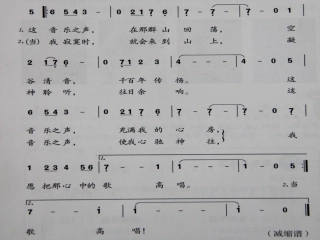 5 6 5 4 3 - 0 2 1 7 6 7 - 7 - 1 - 0 5
1. 这 音乐之声， 在那群山 回 荡， 空
2.(当) 我 寂寞时， 就会来到 山 上， 凝
2 1 7 6 7 - 0 2 1 7 6 4 - 4 - 4 - 0 5
谷 清 音， 千百年 传 扬。 这
神 聆 听， 往日余 响。 这
6 5 4 3 - 0 2 1 7 6 7 - 7 - 1 - 0 1
音乐之声， 充满我的 心 房，
音乐之声， 使我心驰 神 往， 我
1 2 3 4 5 6 7 - 1 - 1 - 1 - 0 5
愿 把那心 中的 歌 高 唱。 2.当
7 - 1 - 1 - 1 - 1 0
歌 高 唱！ （减缩谱）